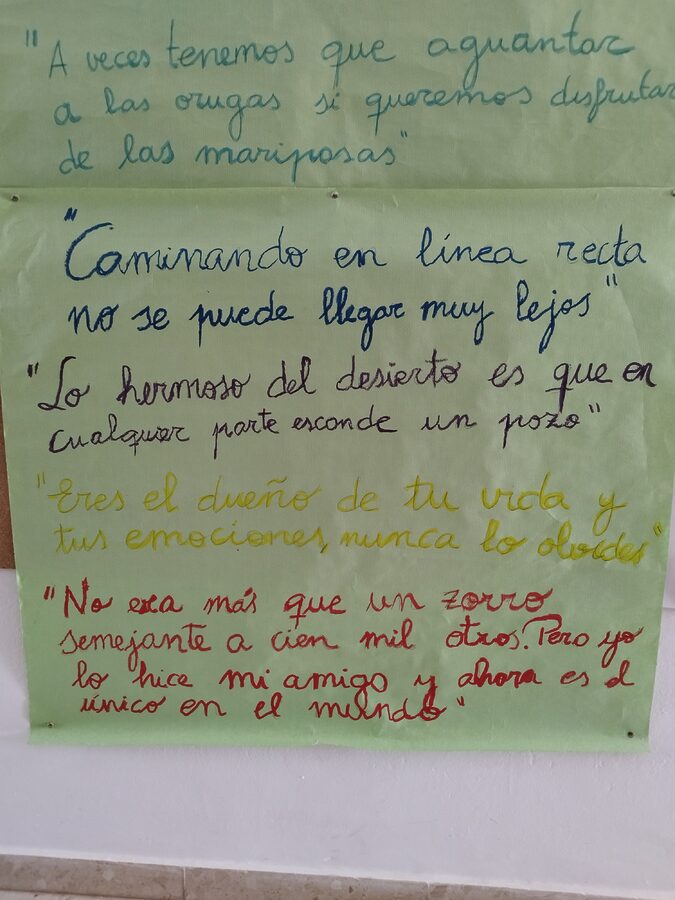 "A veces tenemos que aguantar
a las orugas si queremos disfrutar
de las mariposas"
"Caminando en línea recta
no se puede llegar muy lejos"
"Lo hermoso del desierto es que en
cualquier parte esconde un pozo"
"Eres el dueño de tu vida y
tus emociones, nunca lo olvides"
"No era más que un zorro
semejante a cien mil otros. Pero yo
lo hice mi amigo y ahora es el
único en el mundo"